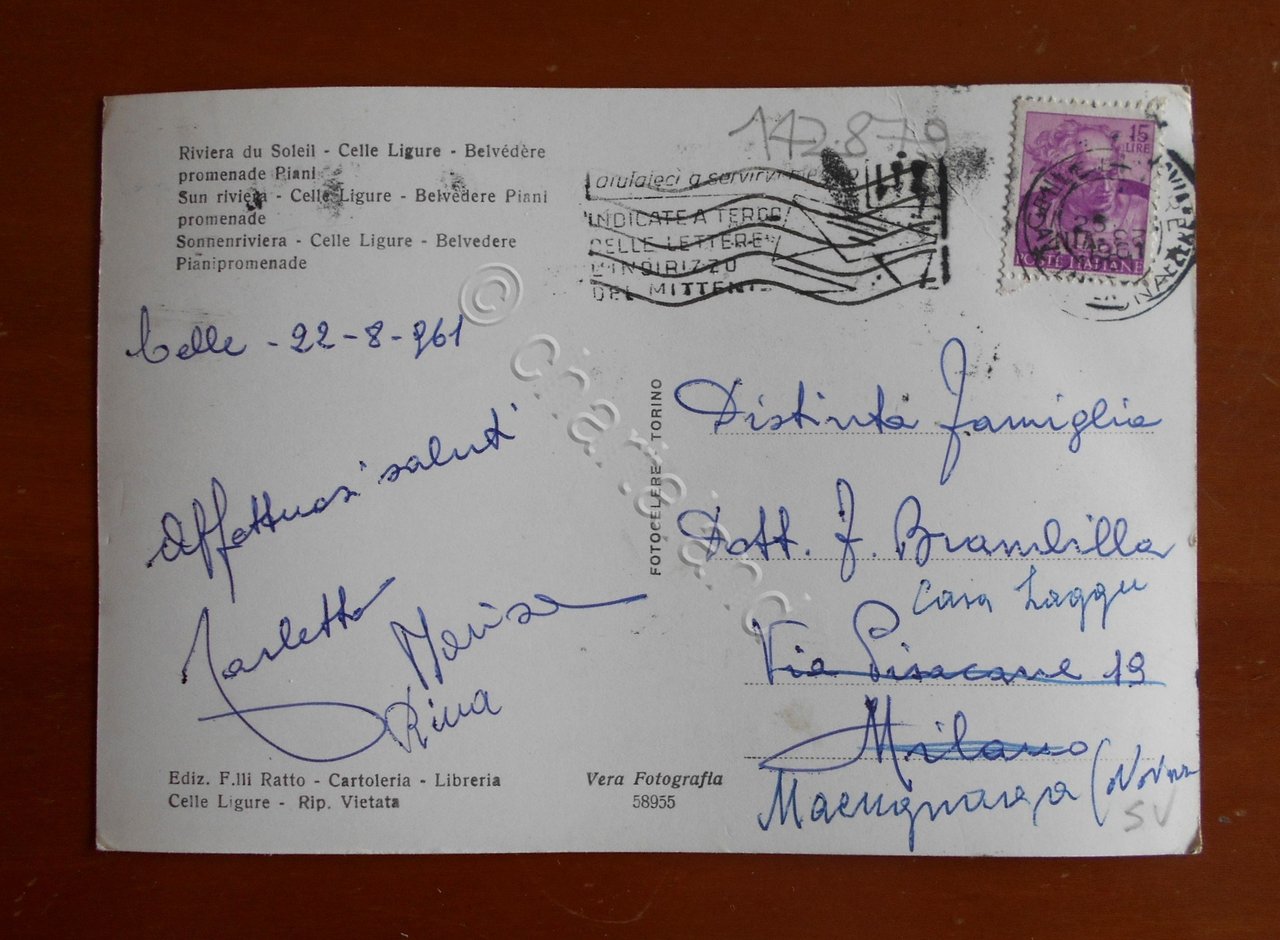 Riviera du Soleil - Celle Ligure - Belvédère
promenade Piani
Sun riviera - Celle Ligure - Belvedere Piani
promenade
Sonnenriviera - Celle Ligure - Belvedere
Pianipromenade
142.879
aiutateci a servirvi
INDICATE A TERGO
DELLE LETTERE
L'INDIRIZZO
DEL MITTENTE
15
LIRE
POSTE ITALIANE
Celle - 22-8-961
Affettuosi saluti
Carletto
Marisa
Rina
FOTOCELERE TORINO
Distinta Famiglia
Dott. F. Brambilla
Casa
Via Pisacane 19
Milano
Macugnaga (Novara
SV
Ediz. F.lli Ratto - Cartoleria - Libreria
Celle Ligure - Rip. Vietata
Vera Fotografia
58955